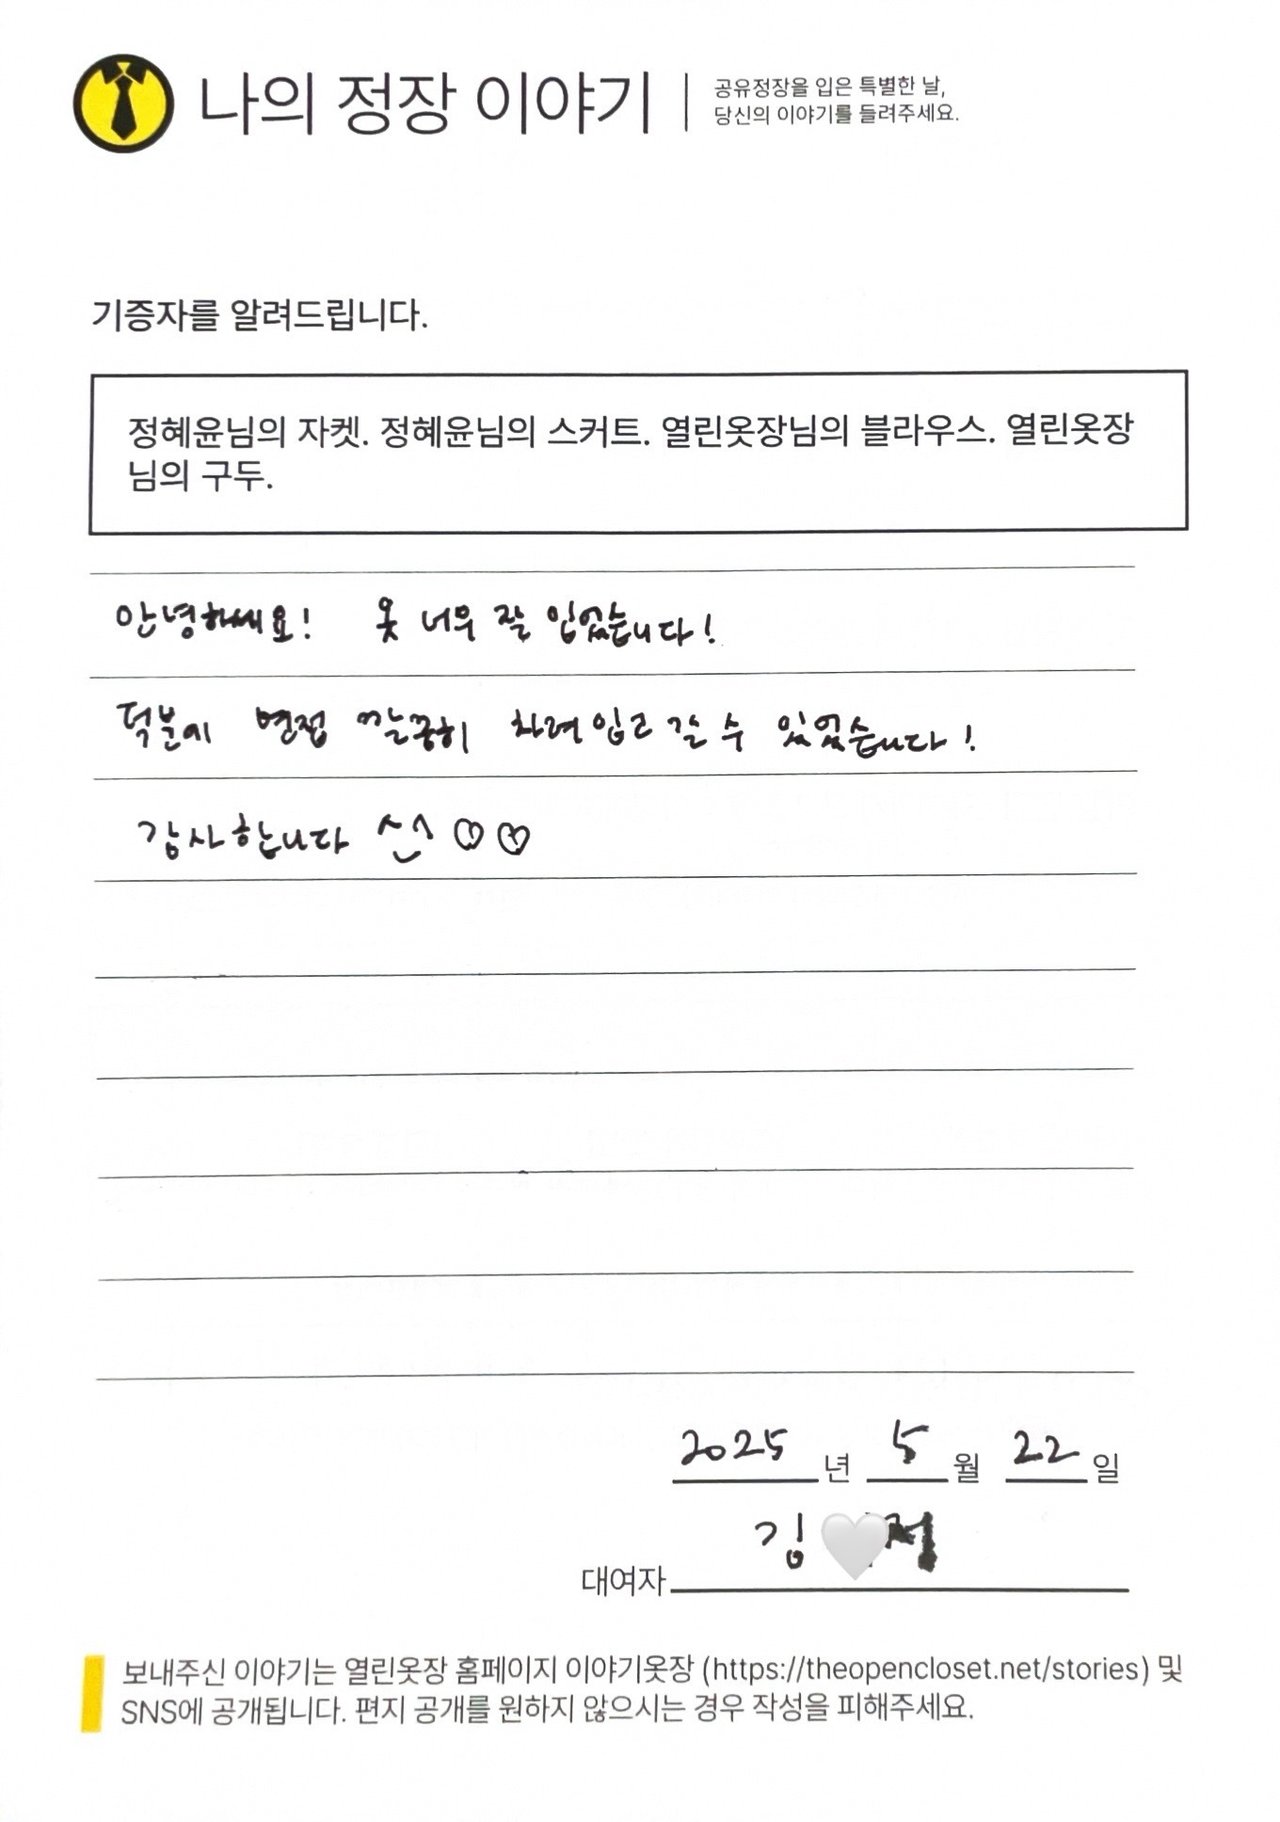 나의 정장 이야기
공유정장을 입은 특별한 날,
당신의 이야기를 들려주세요.
기증자를 알려드립니다.
정혜윤님의 자켓. 정혜윤님의 스커트. 열린옷장님의 블라우스. 열린옷장
님의 구두.
안녕하세요! 옷 너무 잘 입었습니다!
덕분에 면접 깔끔히 차려입고 갈 수 있었습니다!
감사합니다 ♡♡
2025년 5월 22일
대여자 김
보내주신 이야기는 열린옷장 홈페이지 이야기옷장 (https://theopencloset.net/stories) 및
SNS에 공개됩니다. 편지 공개를 원하지 않으시는 경우 작성을 피해주세요.